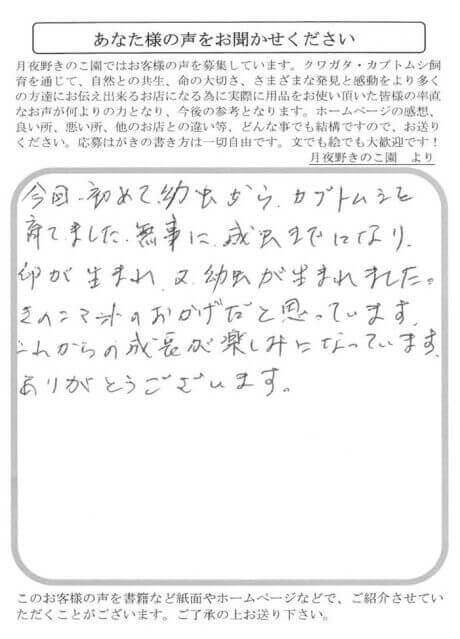 あなた様の声をお聞かせください
月夜野きのこ園ではお客様の声を募集しています。クワガタ・カブトムシ飼
育を通じて、自然との共生、命の大切さ、さまざまな発見と感動をより多く
の方達にお伝え出来るお店になる為に実際に用品をお使い頂いた皆様の率直
なお声が何よりの力となり、今後の参考となります。ホームページの感想、
良い所、悪い所、他のお店との違い等、どんな事でも結構ですので、お送り
ください。応募はがきの書き方は一切自由です。文でも絵でも大歓迎です！
月夜野きのこ園　より
今回、初めて、幼虫から、カブトムシを
育てました。無事に、成虫までになり、
卵が生まれ、又、幼虫が生まれました。
きのこマットのおかげだと思っています。
これからの成長が楽しみになっています。
ありがとうございます。
このお客様の声を書籍など紙面やホームページなどで、ご紹介させてい
ただくことがございます。ご了承の上お送り下さい。